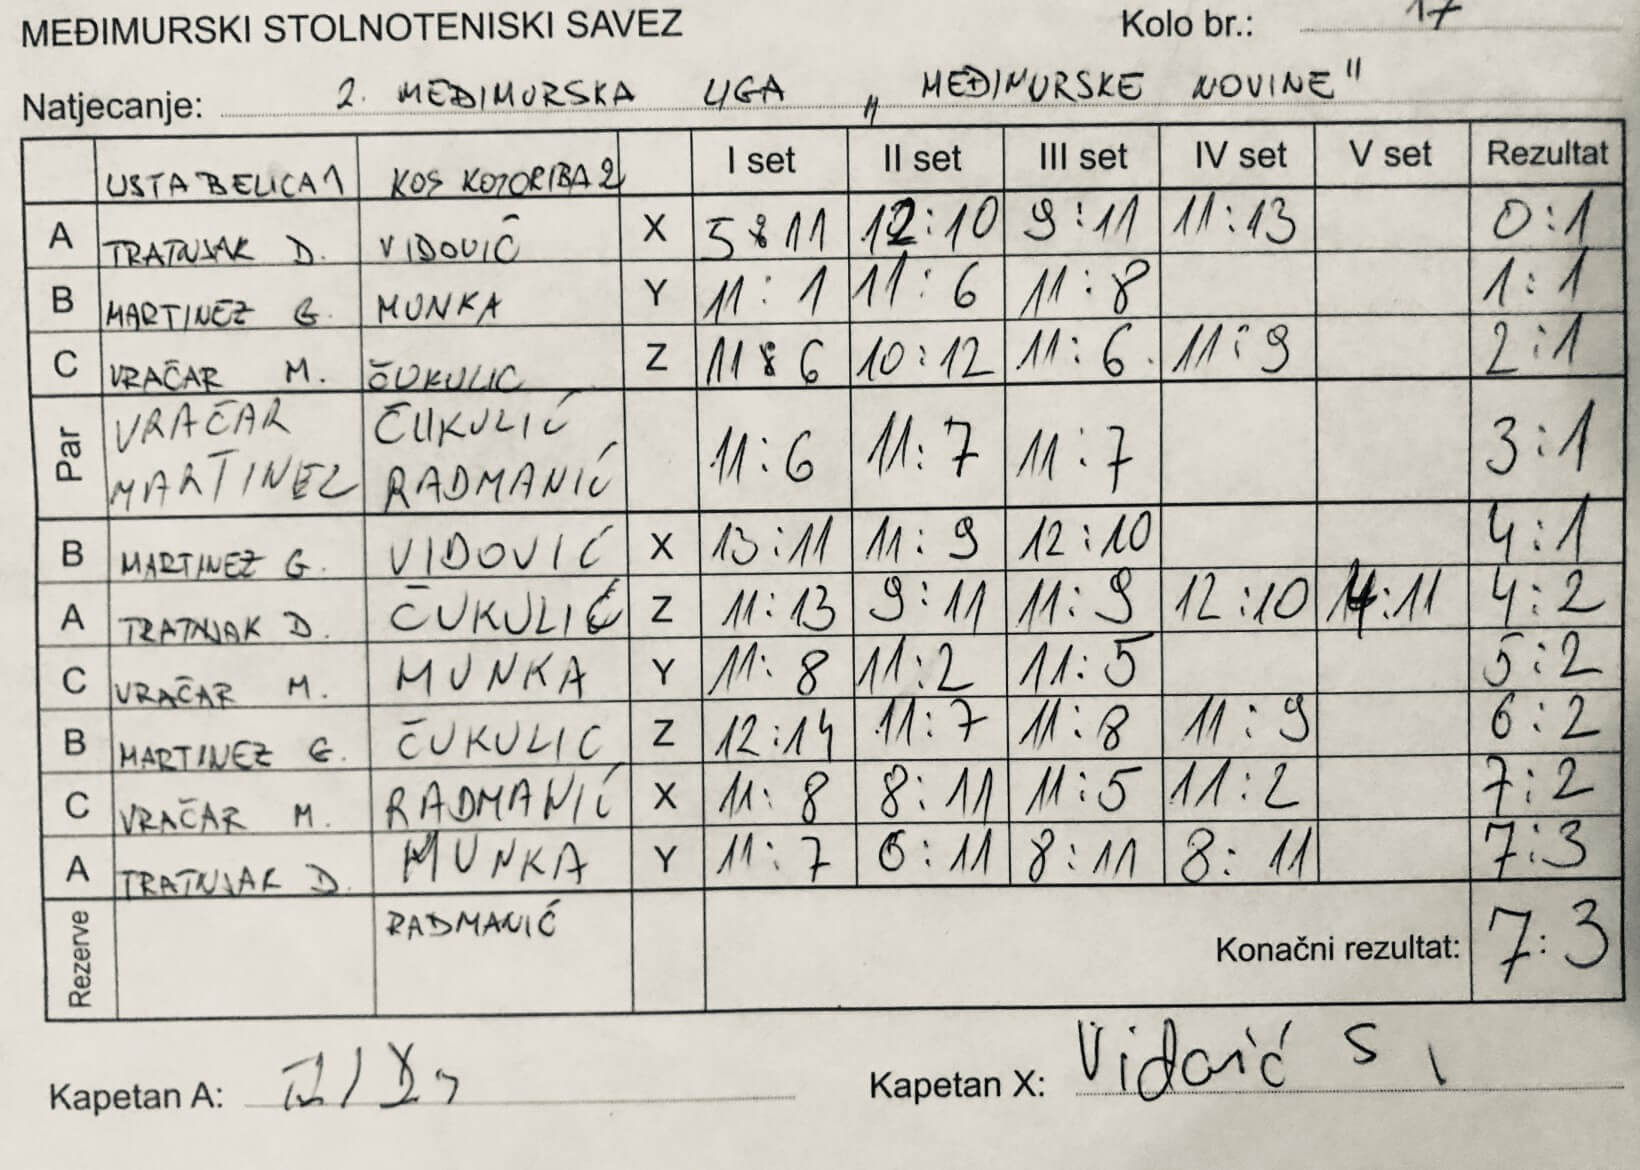 MEĐIMURSKI STOLNOTENISKI SAVEZ Kolo br.: 17
Natjecanje: 2. MEĐIMURSKA LIGA „MEĐIMURSKE NOVINE"
USTA BELICA 1 KOS KOTORIBA 2 I set II set III set IV set V set Rezultat
A TRATNJAK D. VIDOVIČ X 5:11 12:10 9:11 11:13 0:1
B MARTINEZ G. MUNKA Y 11:1 11:6 11:8 1:1
C VRAČAR M. ČUKULIC Z 11:6 10:12 11:6 11:9 2:1
Par VRAČAR MARTINEZ ČUKULIĆ RADMANIĆ 11:6 11:7 11:7 3:1
B MARTINEZ G. VIDOVIĆ X 13:11 11:9 12:10 4:1
A TRATNJAK D. ČUKULIĆ Z 11:13 9:11 11:9 12:10 4:11 4:2
C VRAČAR M. MUNKA Y 11:8 11:2 11:5 5:2
B MARTINEZ G. ČUKULIC Z 12:14 11:7 11:8 11:9 6:2
C VRAČAR M. RADMANIĆ X 11:8 8:11 11:5 11:2 7:2
A TRATNJAK D. MUNKA Y 11:7 6:11 8:11 8:11 7:3
Rezerve RADMANIĆ Konačni rezultat: 7:3
Kapetan A: Kapetan X: Vidović S